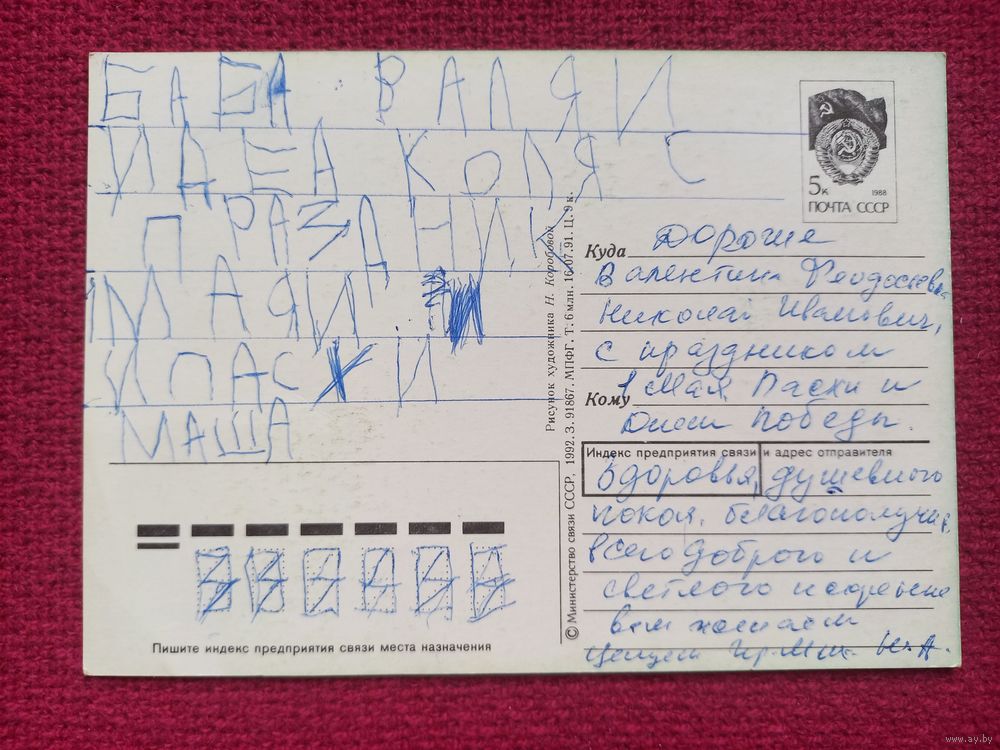 БАБА ВАЛЯ И
И ДЕА КОЛЯ С
ПРАЗДНИК
МАЯ И
И ПАСХИ
МАША
5к
1988
ПОЧТА СССР
Куда Дорогие
Валентина Феодосьевна
Николай Иванович,
с праздником
1 Мая Пасхи и
Кому
Днем Победы.
Индекс предприятия связи и адрес отправителя
Здоровья, душевного
покоя, благополучия,
всего доброго и
светлого искренне
вам желаем
Целуем Н.А.
Рисунок художника Н. Коробовой
© Министерство связи СССР, 1992. З. 91867. МПФГ. Т. 6 млн. 16.07.91. Ц. 9 к.
Пишите индекс предприятия связи места назначения
www.ay.by